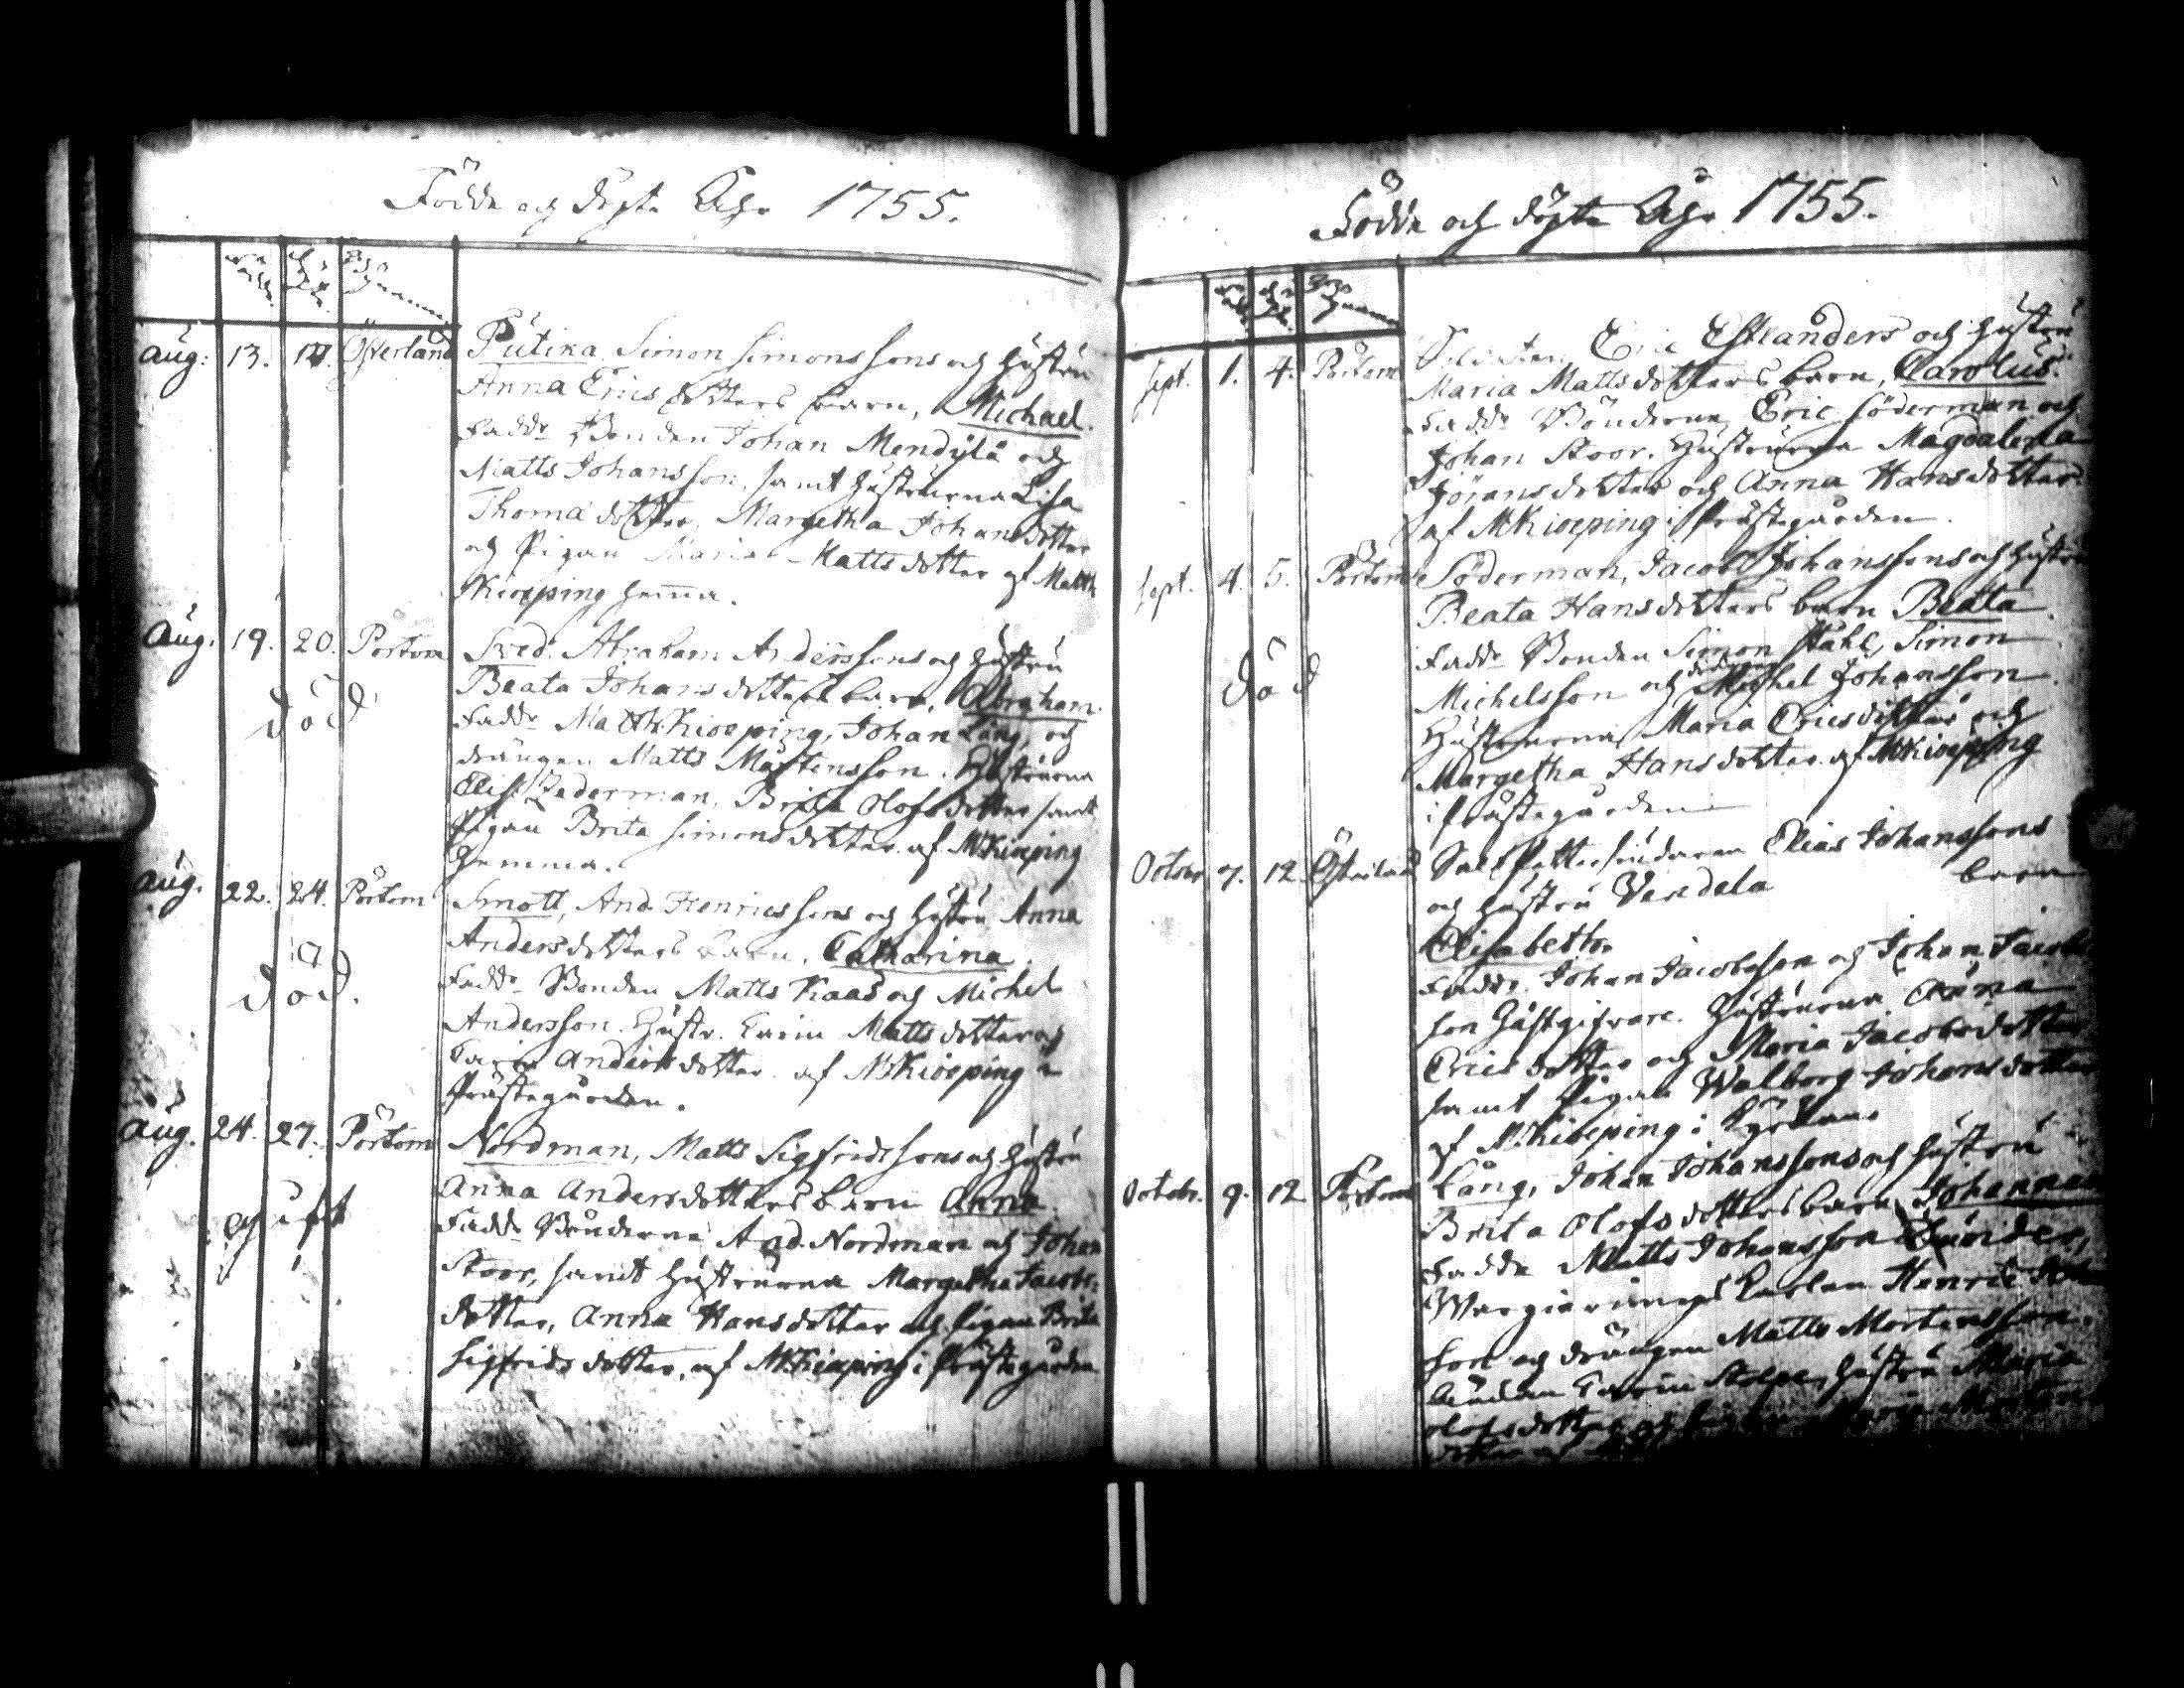 Födde och döpte Åhr 1755.
Aug: 13. 17. Österland Putika, Simon Simonssons och hustru
Anna Ericsdotters barn, Michael.
Faddr Bonden Johan Mendylä och
Matts Johansson, samt hustrurna Lisa
Thomadotter, Margetha Johansdotter
och Pigan Maria Mattsdotter af Matth.
Kioeping hemma.
Aug. 19. 20. Pörtom Sved. Abraham Anderssons och hustru
död
Beata Johansdotters barn, Abraham.
Faddr Matth Kioeping, Johan Lång, och
drängen Matts Mårtensson. Hustrurna
Elis. Zederman, Brita Olofsdotter samt
Pigan Brita Simonsdotter. af M Kioeping
hemma.
Aug. 22. 24. Pörtom Smott, And. Henricssons och hustru Anna
Andersdotters barn, Catharina.
död.
Faddr Bonden Matts Kaas och Michel
Andersson. Hustr. Carin Mattsdotter och
Carin Andersdotter. af M Kioeping i
Prästegården.
Aug. 24. 27. Pörtom Nordman, Matts Sigfridssons och hustru
Anna Andersdotters barn Anna.
gift
Faddr Bönderna And. Nordman och Johan
Stoor, samt hustrurna Margetha Jacobs-
dotter, Anna Hansdotter och Pigan Brita
Sigfridsdotter, af M Kioeping i Prästegården
Födde och döpte Åhr 1755.
Sept. 1. 4. Pörtom Soldaten Eric Estlanders och hustru
Maria Mattsdotters barn, Carolus.
Faddr Bönderna Eric Söderman och
Johan Stoor. Hustrurna Magdalena
Jöransdotter och Anna Hansdotter.
af M Kioeping i Prästegården.
Sept. 4. 5. Pörtom Söderman, Jacob Johanssons och hustru
Beata Hansdotters barn Beata.
död
Faddr Bonden Simon Ståhl, Simon
Michelsson och drängen Michel Johansson.
Hustrurna Maria Ericsdotter och
Margetha Hansdotter. af M Kioeping
i Prästegården
Octobr 7. 12 Österland Saltpettersiudaren Elias Johanssons
och hustru Vendela barn
Elisabetha
Faddr. Johan Jacobsson och Johan Jacobs
son Gästgifvare. Hustrurna Anna
Ericsdotter och Maria Jacobsdotter
samt Pigan Walborg Johansdotter
af M Kioeping i Kyrkan
Octobr. 9. 12 Pörtom Lång, Johan Johanssons och hustru
Brita Olofsdotters barn Johannes
Faddr Matts Johansson
Henric
son och drängen Matts Mortensson.
Carin Stolpe, hustru Maria
Olofsdotter och